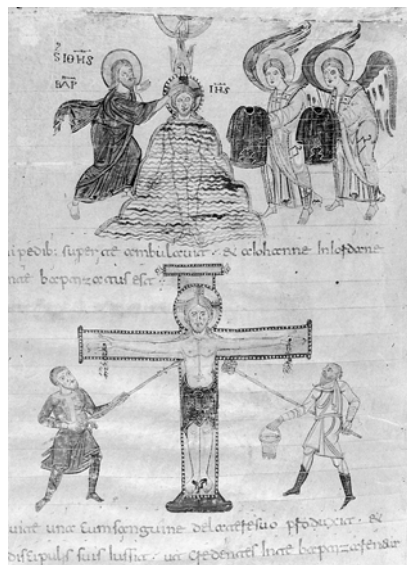 S IOHS
BAP
IHS
pedib: super te ambulauit · et a Iohanne In Iordane
In te baptizatus est ·
te una cum sanguine de latere suo produxit · et
discipulis suis iussit · ut credentes In te baptizarentur